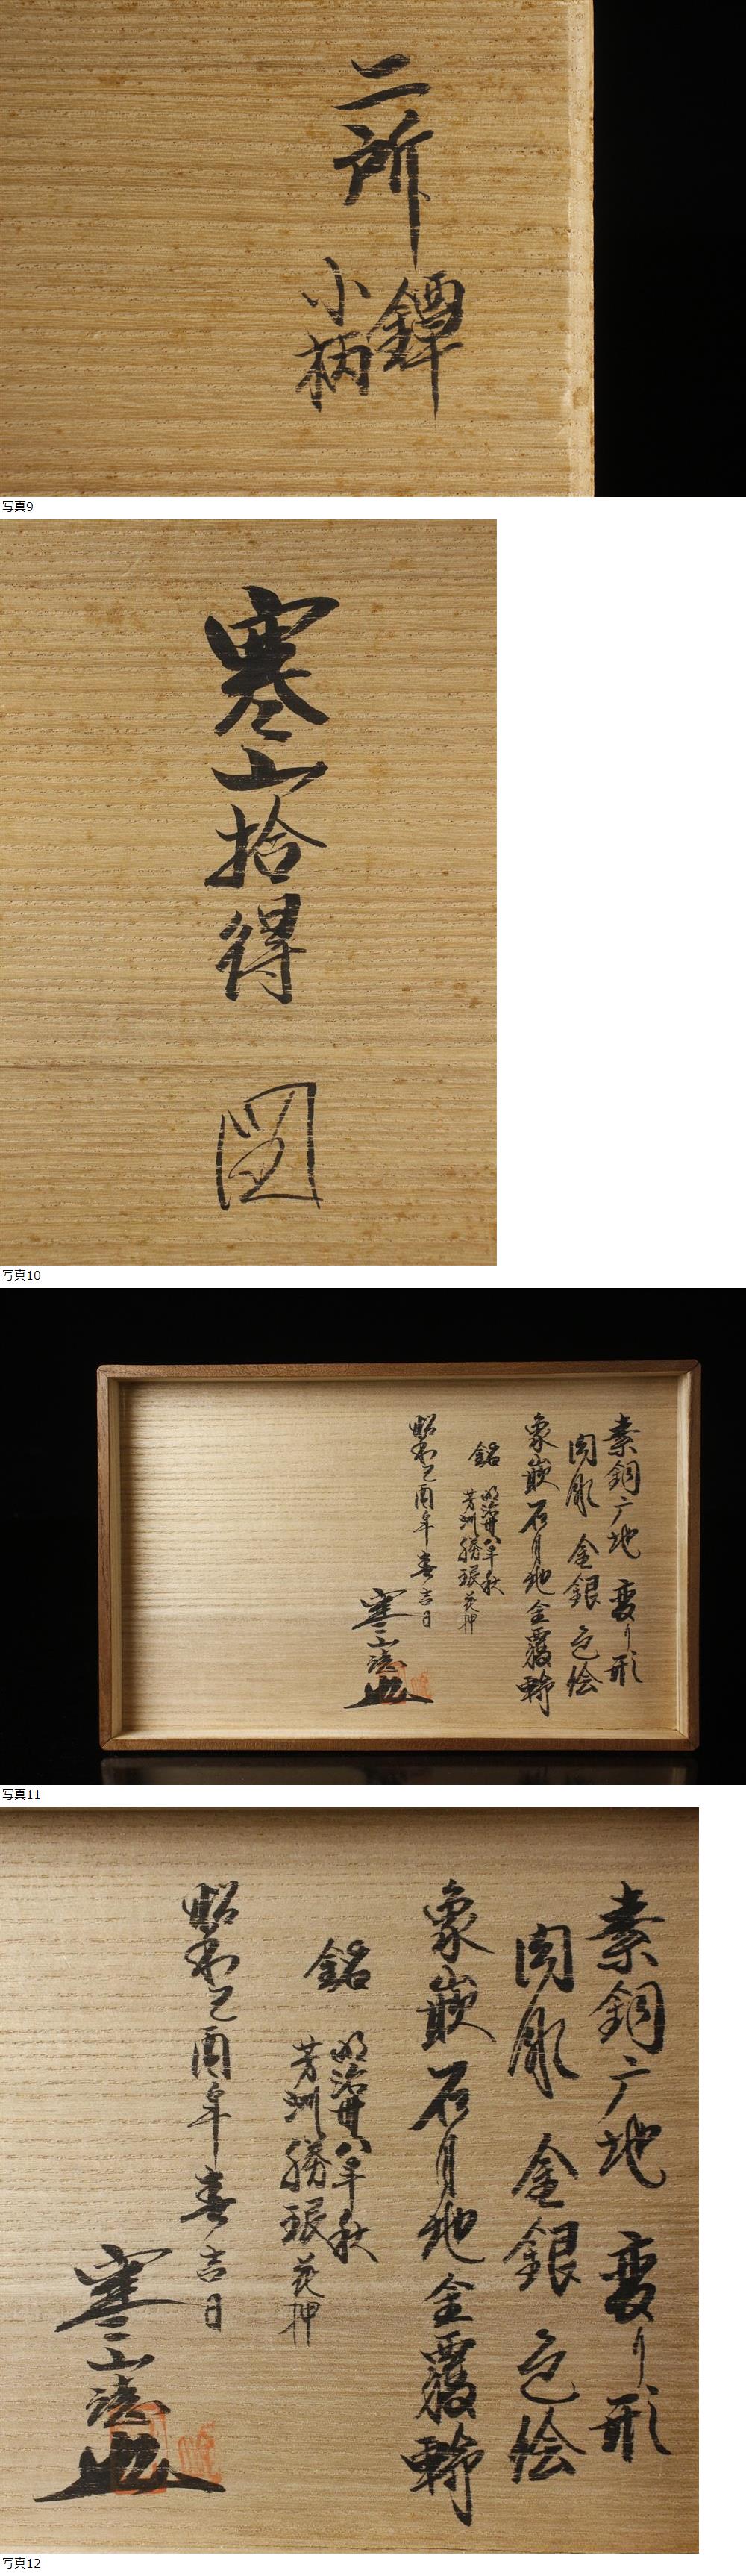 二所
鐔
小柄
写真9
寒山拾得 図
写真10
素銅广地 変り形
肉彫 金銀色絵
象嵌石目地金覆輪
銘 明治卅八年秋
芳洲勝珉 花押
昭和己酉年春吉日
寒山誌
写真11
素銅广地 変り形
肉彫 金銀色絵
象嵌石目地金覆輪
銘 明治卅八年秋
芳洲勝珉 花押
昭和己酉年春吉日
寒山誌
写真12